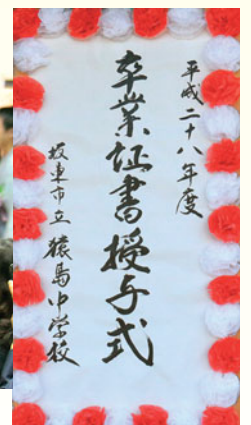 平成二十八年度
卒業証書授与式
坂東市立 猿島中学校